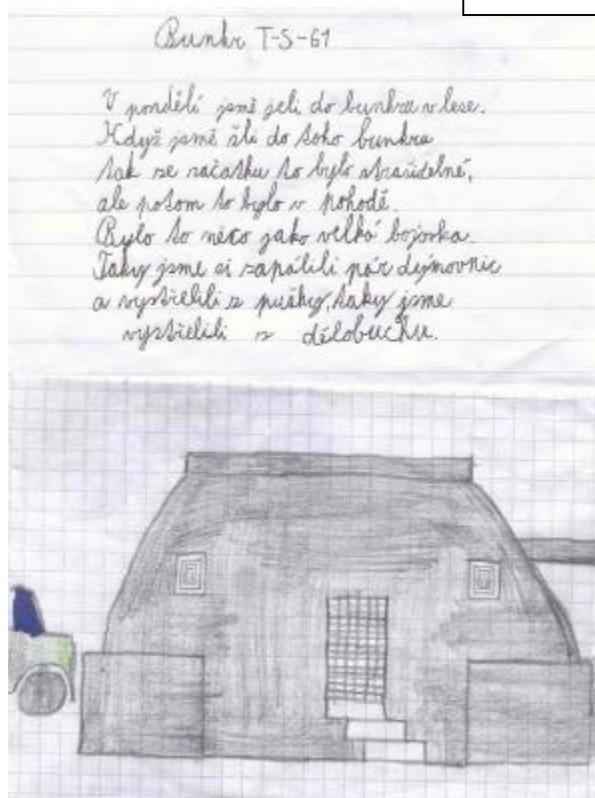 Bunkr T-S-61
V pondělí jsmě jeli do bunkru v lese.
Když jsmě šli do toho bunkru
tak se začátku to bylo strašidelné,
ale potom to bylo v pohodě.
Bylo to něco jako velká bojovka.
Taky jsme si zapálili pár dýmovnic
a vystřelili z pušky, taky jsme
vystřelili z dělobuchu.